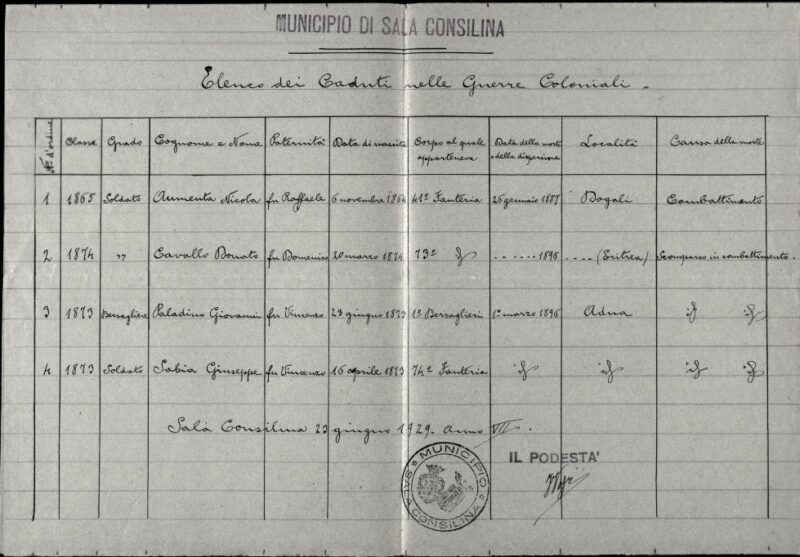 MUNICIPIO DI SALA CONSILINA
Elenco dei Caduti nelle Guerre Coloniali.
N° d'ordine Classe Grado Cognome e Nome Paternità Data di nascita Corpo al quale apparteneva Data della morte o della dispersione Località Causa della morte
1 1865 Soldato Aumenta Nicola fu Raffaele 6 novembre 1864 41° Fanteria 26 gennaio 1887 Dogali Combattimento
2 1874 " Cavallo Donato fu Domenico 20 marzo 1874 73° id ...... 1896 .... (Eritrea) Scomparso in combattimento.
3 1873 Bersagliere Paladino Giovanni fu Vincenzo 23 giugno 1873 1° Bersaglieri 1° marzo 1896 Adua id id
4 1873 Soldato Sabia Giuseppe fu Vincenzo 16 aprile 1873 74° Fanteria id id id id
Sala Consilina 23 giugno 1929. Anno VII.
IL PODESTA'
MUNICIPIO
SALA CONSILINA